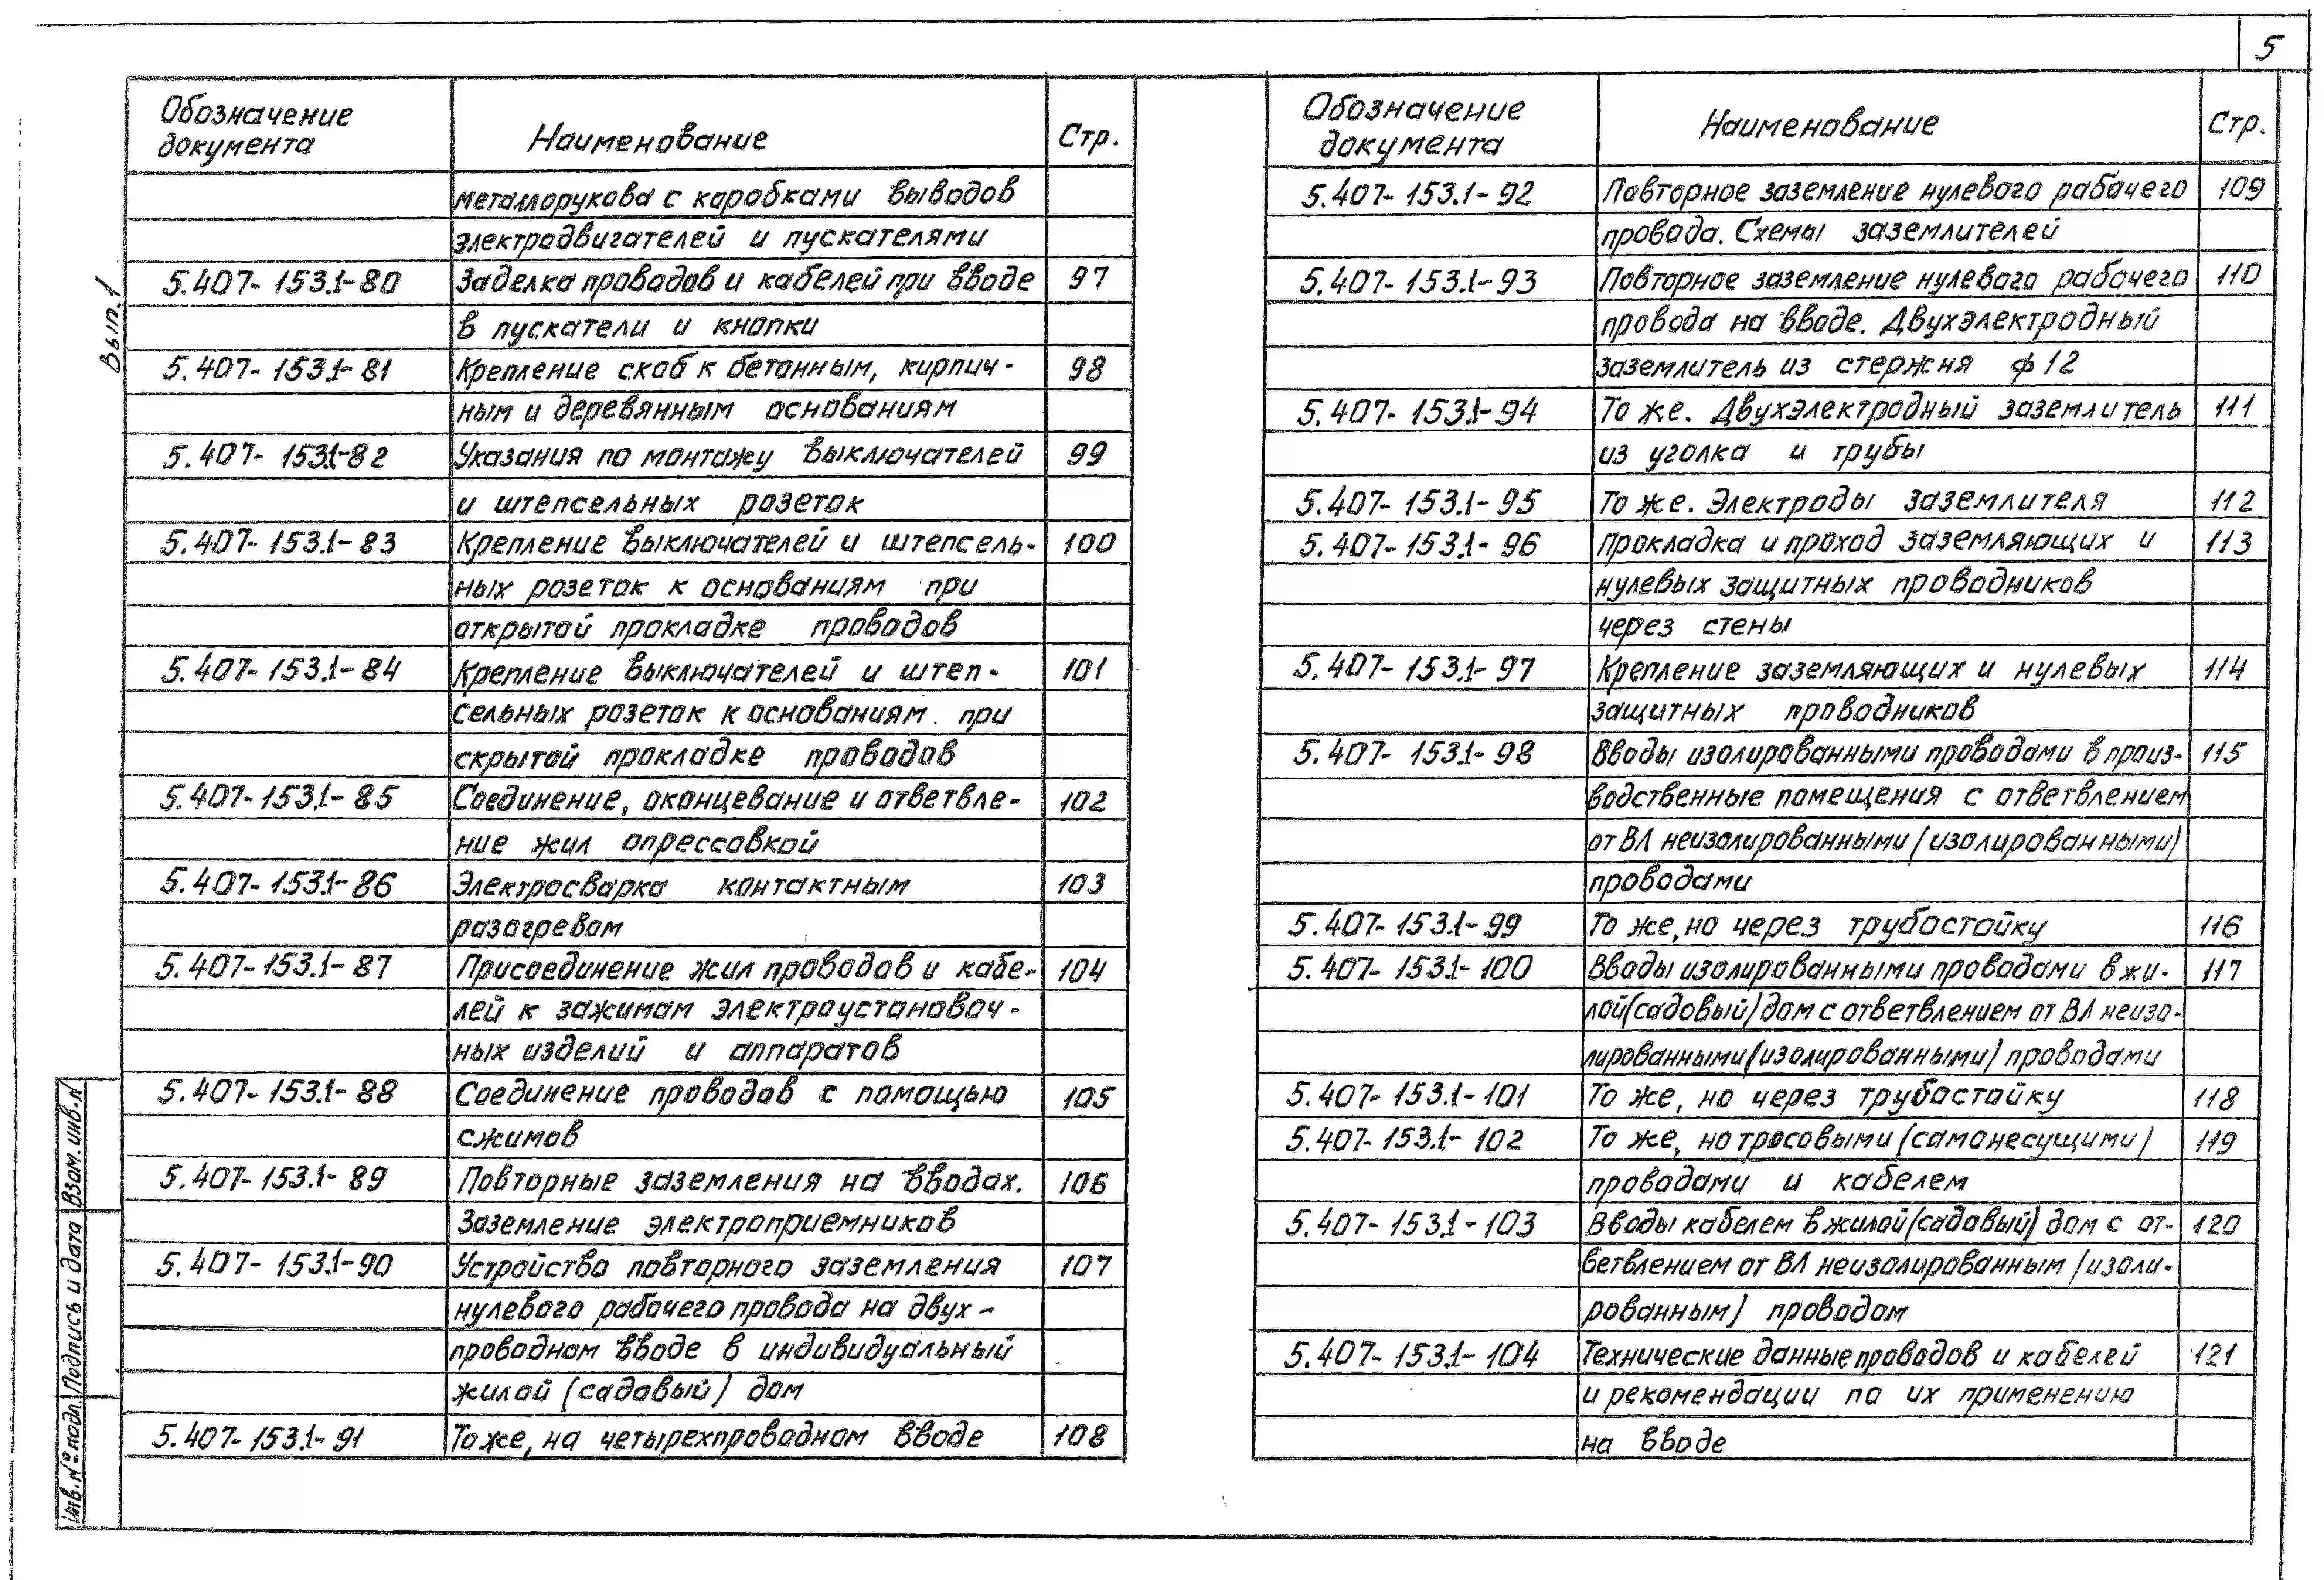 5
Обозначение документа Наименование Стр.
металлорукова с коробками выводов
электродвигателей и пускателями
5.407-153.1-80 Заделка проводов и кабелей при вводе 97
в пускатели и кнопки
5.407-153.1-81 Крепление скоб к бетонным, кирпич- 98
ным и деревянным основаниям
5.407-153.1-82 Указания по монтажу выключателей 99
и штепсельных розеток
5.407-153.1-83 Крепление выключателей и штепсель- 100
ных розеток к основаниям при
открытой прокладке проводов
5.407-153.1-84 Крепление выключателей и штеп- 101
сельных розеток к основаниям при
скрытой прокладке проводов
5.407-153.1-85 Соединение, оконцевание и ответвле- 102
ние жил опрессовкой
5.407-153.1-86 Электросварка контактным 103
разогревом
5.407-153.1-87 Присоединение жил проводов и кабе- 104
лей к зажимам электроустановоч-
ных изделий и аппаратов
5.407-153.1-88 Соединение проводов с помощью 105
сжимов
5.407-153.1-89 Повторные заземления на вводах. 106
Заземление электроприемников
5.407-153.1-90 Устройство повторного заземления 107
нулевого рабочего провода на двух-
проводном вводе в индивидуальный
жилой (садовый) дом
5.407-153.1-91 То же, на четырехпроводном вводе 108
Обозначение документа Наименование Стр.
5.407-153.1-92 Повторное заземление нулевого рабочего 109
провода. Схемы заземлителей
5.407-153.1-93 Повторное заземление нулевого рабочего 110
провода на вводе. Двухэлектродный
заземлитель из стержня ф12
5.407-153.1-94 То же. Двухэлектродный заземлитель 111
из уголка и трубы
5.407-153.1-95 То же. Электроды заземлителя 112
5.407-153.1-96 Прокладка и проход заземляющих и 113
нулевых защитных проводников
через стены
5.407-153.1-97 Крепление заземляющих и нулевых 114
защитных проводников
5.407-153.1-98 Вводы изолированными проводами в произ- 115
водственные помещения с ответвлением
от ВЛ неизолированными (изолированными)
проводами
5.407-153.1-99 То же, но через трубостойку 116
5.407-153.1-100 Вводы изолированными проводами в жи- 117
лой (садовый) дом с ответвлением от ВЛ неизо-
лированными (изолированными) проводами
5.407-153.1-101 То же, но через трубостойку 118
5.407-153.1-102 То же, но тросовыми (самонесущими) 119
проводами и кабелем
5.407-153.1-103 Вводы кабелем в жилой (садовый) дом с от- 120
ветвлением от ВЛ неизолированным (изоли-
рованным) проводом
5.407-153.1-104 Технические данные проводов и кабелей 121
и рекомендации по их применению
на вводе
Вып.1
Инв.№ подл. Подпись и дата Взам. инв.N